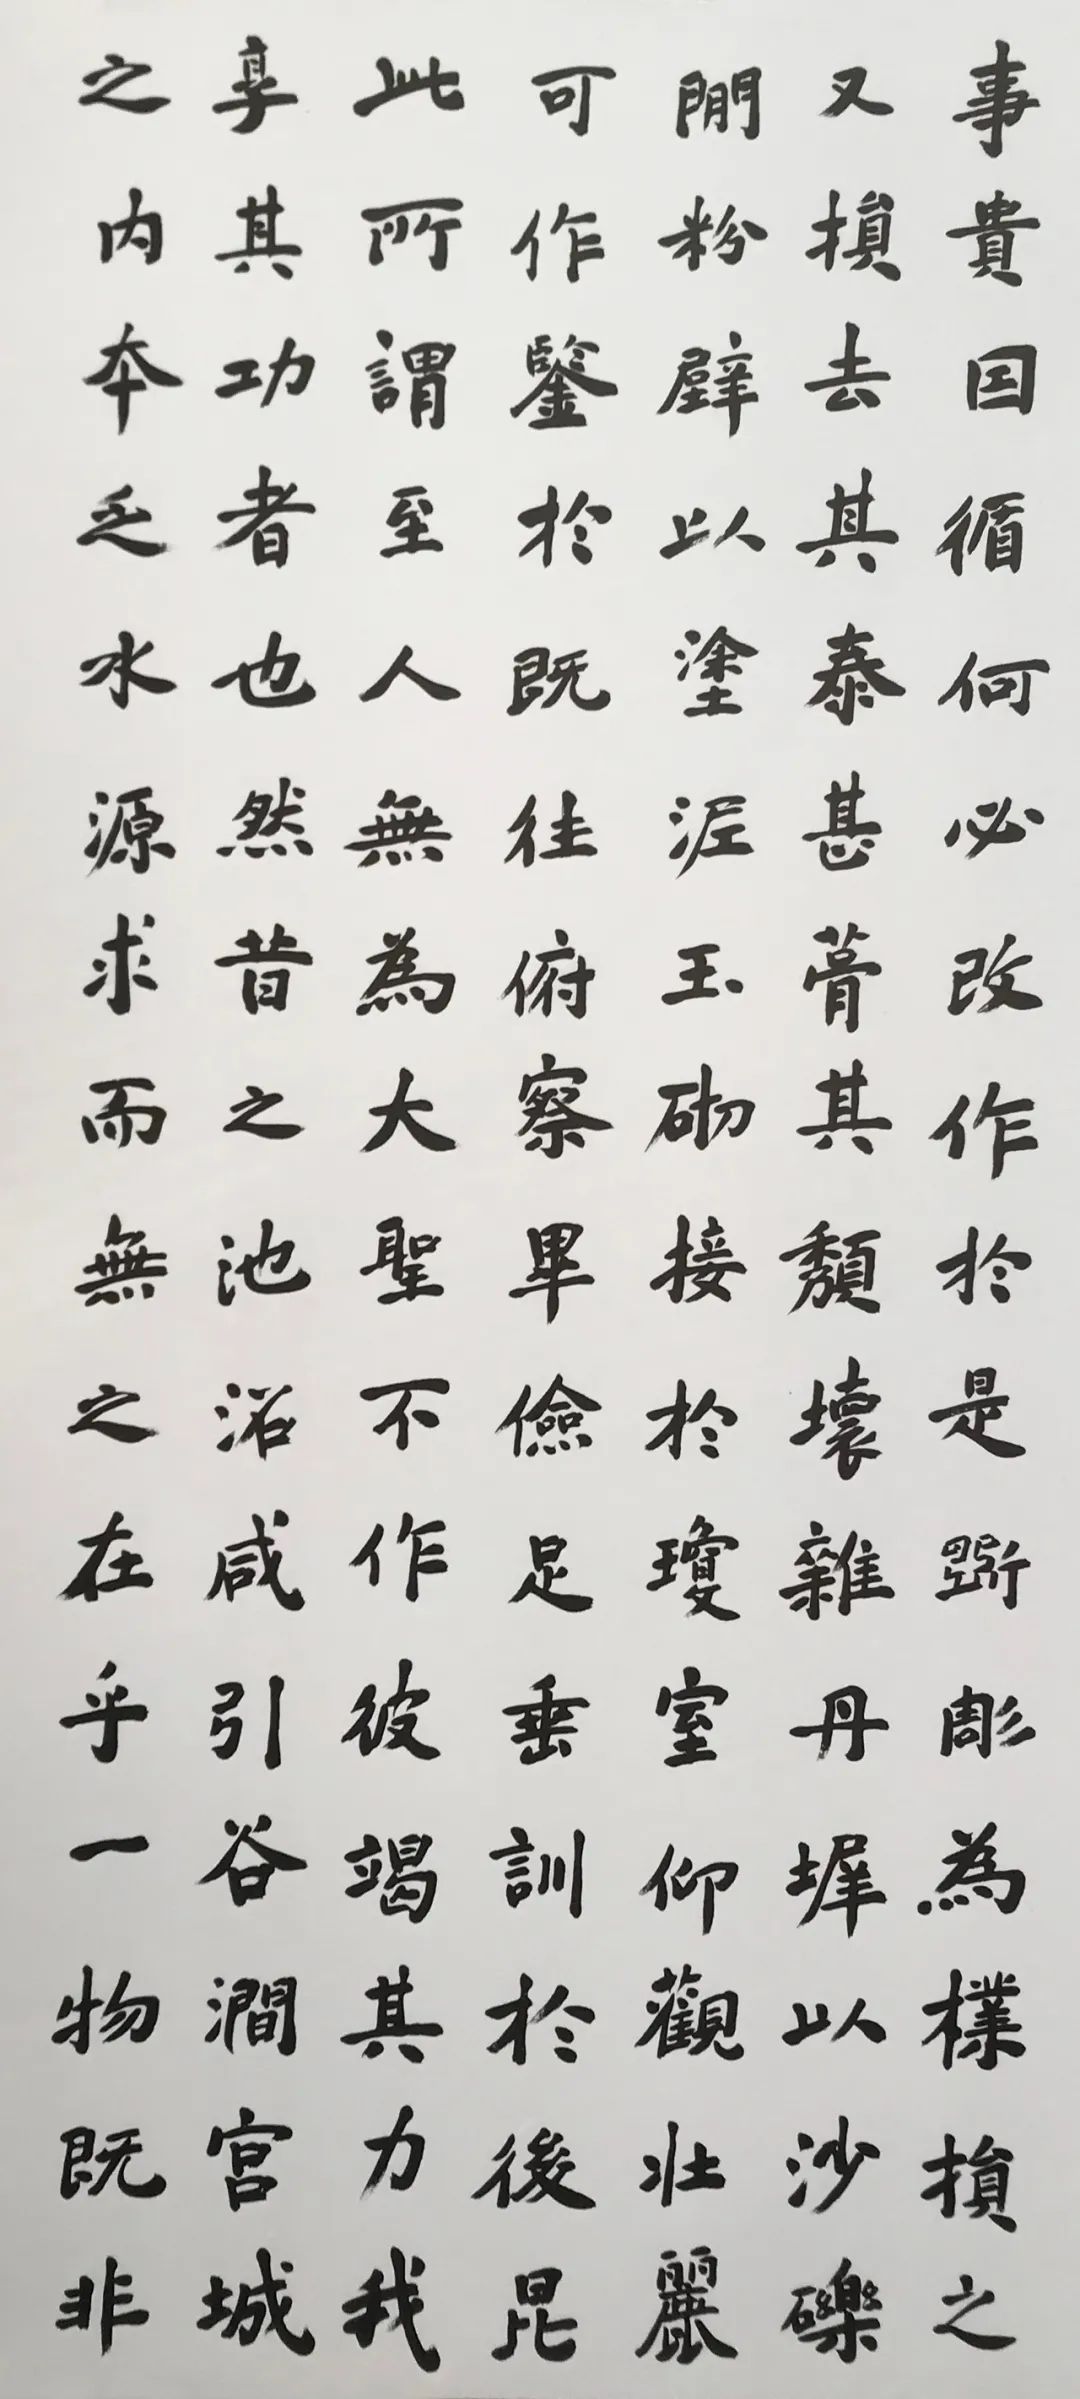 事貴因循何必改作於是斲彫為樸損之
又損去其泰甚葺其頹壞雜丹墀以沙礫
間粉壁以塗泥玉砌接於瓊室仰觀壯麗
可作鑒於既往俯察卑儉足垂訓於後昆
此所謂至人無為大聖不作彼竭其力我
享其功者也然昔之池沼咸引谷澗宮城
之內本乏水源求而無之在乎一物既非